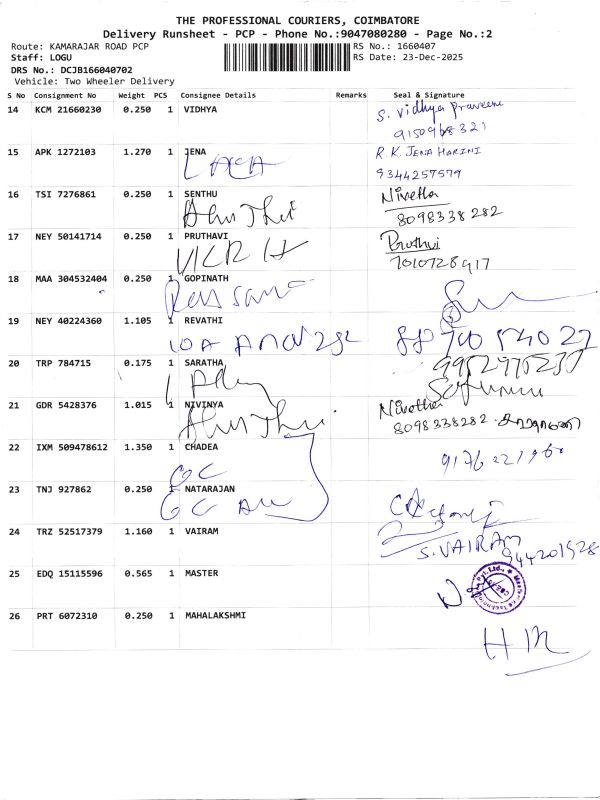 THE PROFESSIONAL COURIERS, COIMBATORE
Delivery Runsheet - PCP - Phone No.:9047080280 - Page No.:2
Route: KAMARAJAR ROAD PCP RS No.: 1660407
Staff: LOGU RS Date: 23-Dec-2025
DRS No.: DCJB166040702
Vehicle: Two Wheeler Delivery
S No Consignment No Weight PCS Consignee Details Remarks Seal & Signature
14 KCM 21660230 0.250 1 VIDHYA S. Vidhya Praveen
9150968321
15 APK 1272103 1.270 1 JENA R. K. JENA HARINI
9344257579
16 TSI 7276861 0.250 1 SENTHU Nivetha
8098338282
17 NEY 50141714 0.250 1 PRUTHAVI Pruthvi
7010728917
18 MAA 304532404 0.250 1 GOPINATH
19 NEY 40224360 1.105 1 REVATHI
20 TRP 784715 0.175 1 SARATHA
21 GDR 5428376 1.015 1 NIVINYA Nivetha
8098338282
22 IXM 509478612 1.350 1 CHADEA
GC
23 TNJ 927862 0.250 1 NATARAJAN
GC
24 TRZ 52517379 1.160 1 VAIRAM
S. VAIRAM
25 EDQ 15115596 0.565 1 MASTER
26 PRT 6072310 0.250 1 MAHALAKSHMI